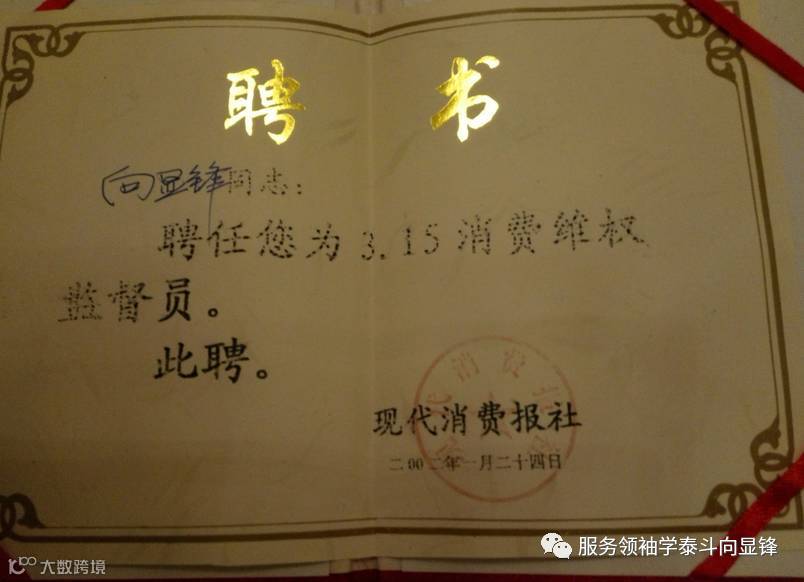 聘书
向显锋同志：
聘任您为3.15消费维权
监督员。
此聘。
现代消费报社
二00二年一月二十四日
服务领袖学泰斗向显锋
大数跨境